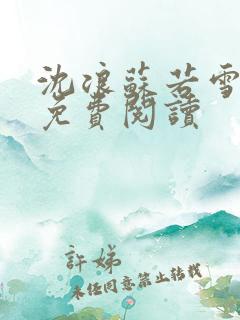 沈浪蘇若雪
免費閱讀
許娣
未經同意禁止轉載